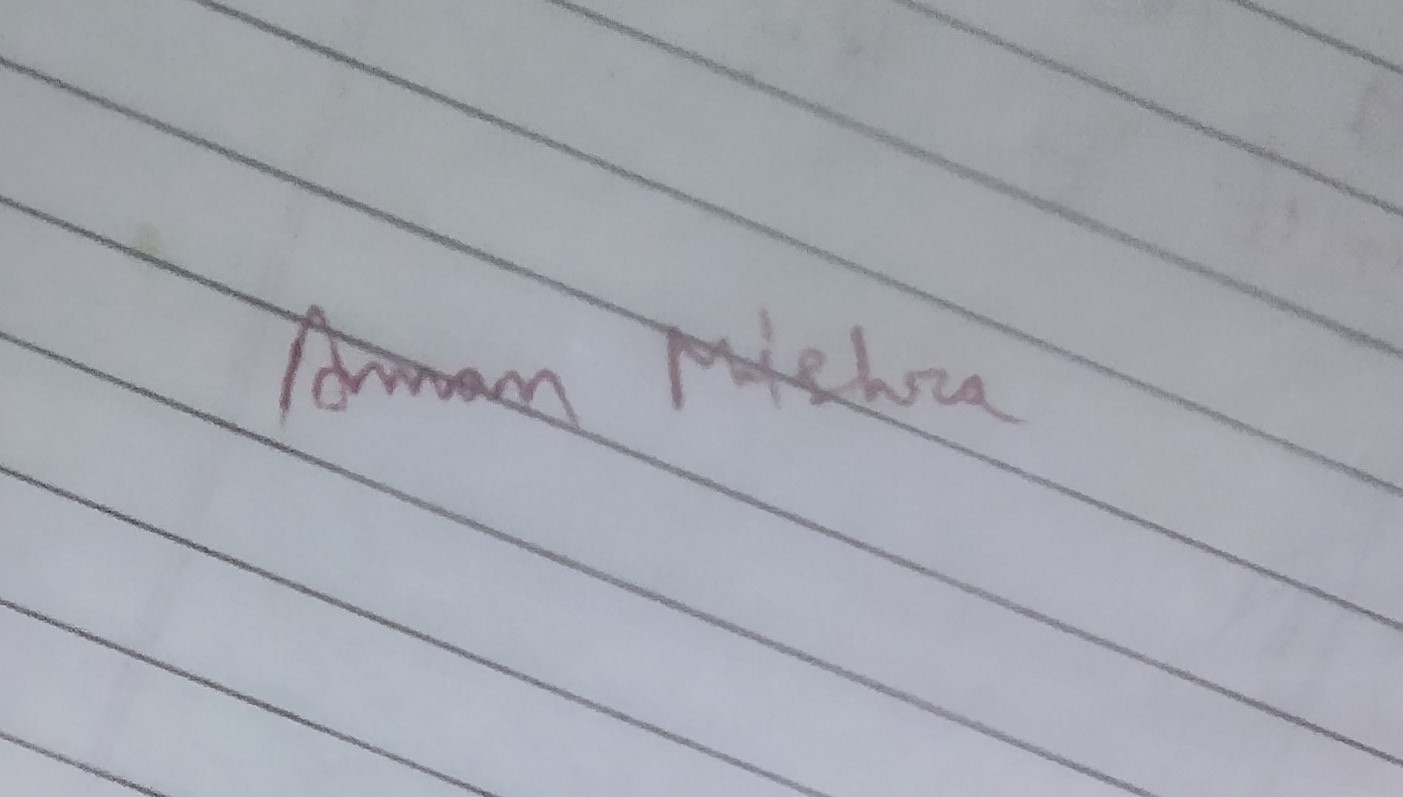 Aman Mishra